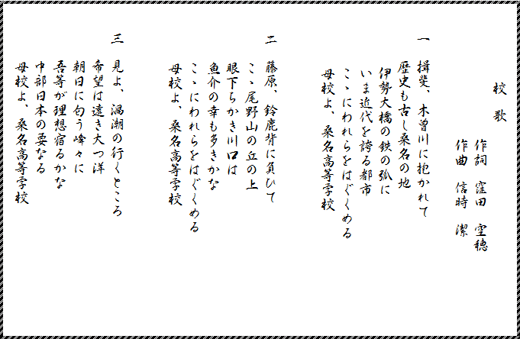 校歌
作詞 窪田 空穂
作曲 信時 潔
一 揖斐、木曽川に抱かれて
歴史も古し桑名の地
伊勢大橋の鉄の弧に
いま近代を誇る都市
こゝにわれらをはぐくめる
母校よ、桑名高等学校
二 藤原、鈴鹿背に負ひて
こゝ尾野山の丘の上
眼下ちかき川口は
魚介の幸も多きかな
こゝにわれらをはぐくめる
母校よ、桑名高等学校
三 見よ、渦潮の行くところ
希望は遠き大つ洋
朝日に匂う峰々に
吾等が理想宿るかな
中部日本の要なる
母校よ、桑名高等学校